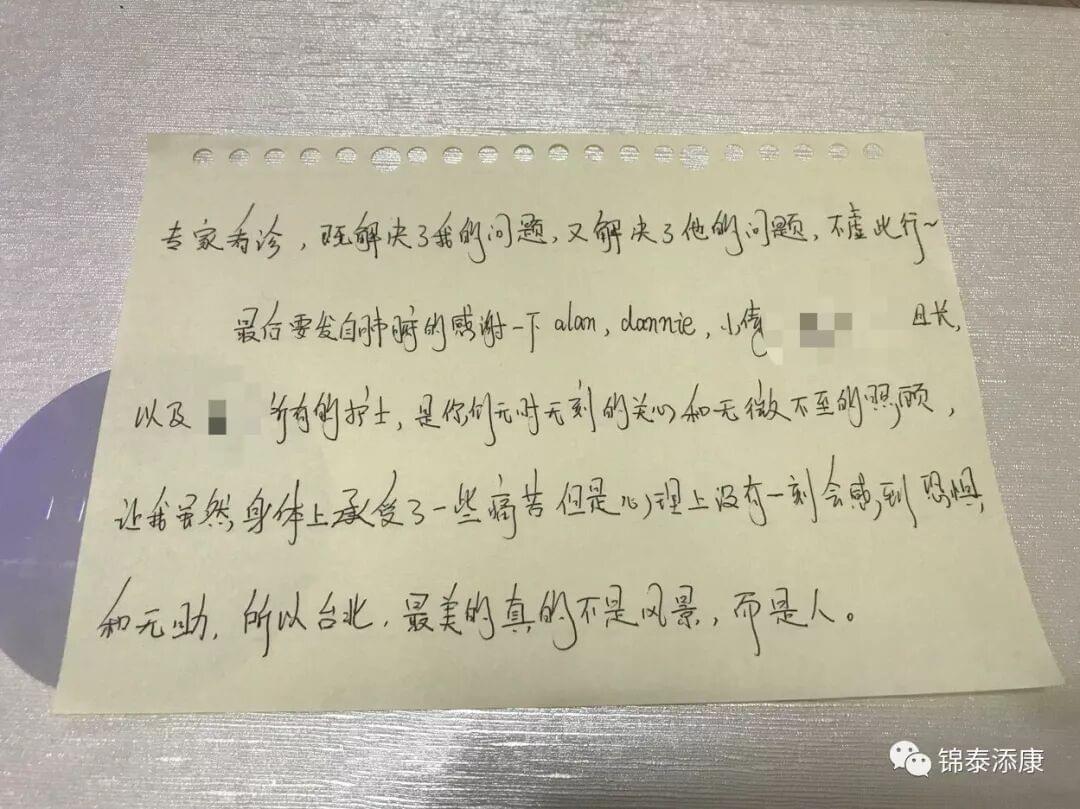 专家看诊，既解决了我的问题，又解决了他的问题，不虚此行~
最后要发自肺腑的感谢一下 alan，dannie，小倩 且长，
以及 所有的护士，是你们无时无刻的关心和无微不至的照顾，
让我虽然身体上承受了一些痛苦但是心理上没有一刻会感到恐惧
和无助，所以台北，最美的真的不是风景，而是人。
锦泰添康